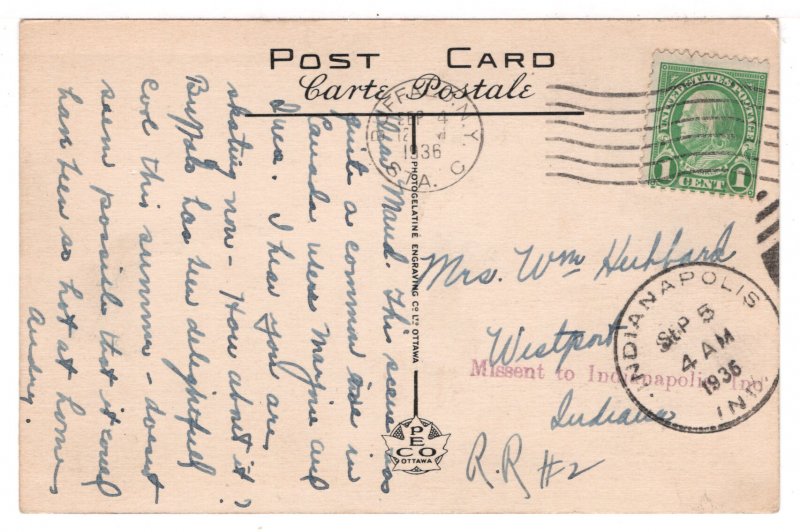 POST CARD
Carte Postale
BUFFALO, N.Y.
SEP 4
12
1936
STA. C
UNITED STATES POSTAGE
1 CENT 1
Dear Maud. This scene was
quite a common one in
Canada where Marjorie and
I was. I hear you are
skating now - How about it?
Buffalo has been delightfully
cool this summer - doesn't
seem possible that it could
have been so hot at home.
Audrey.
PHOTOGELATINE ENGRAVING CO. LTD. OTTAWA
PECO
OTTAWA
Mrs. Wm Hubbard
Westport
Missent to Indianapolis, Ind.
Indiana
R.R #2
INDIANAPOLIS
SEP 5
4 AM
1936
IND.